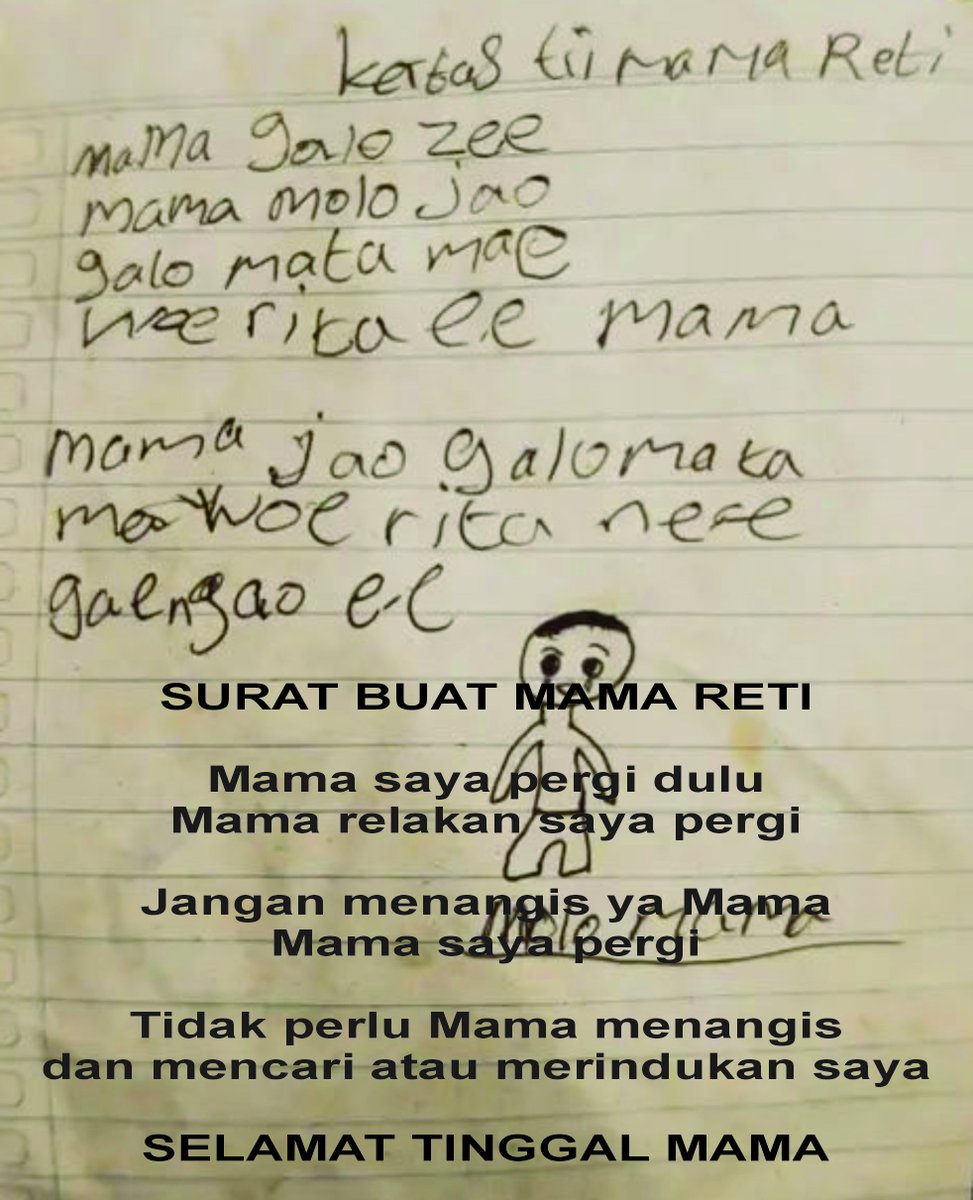 kertas tii mama Reti
mama galo zee
mama molo jao
galo mata mae
woe rita e.e mama
mama jao galo mata
mae woe rita ne e-e
gaengao e-e
SURAT BUAT MAMA RETI
Mama saya pergi dulu
Mama relakan saya pergi
Jangan menangis ya Mama
molo mama
Mama saya pergi
Tidak perlu Mama menangis
dan mencari atau merindukan saya
SELAMAT TINGGAL MAMA